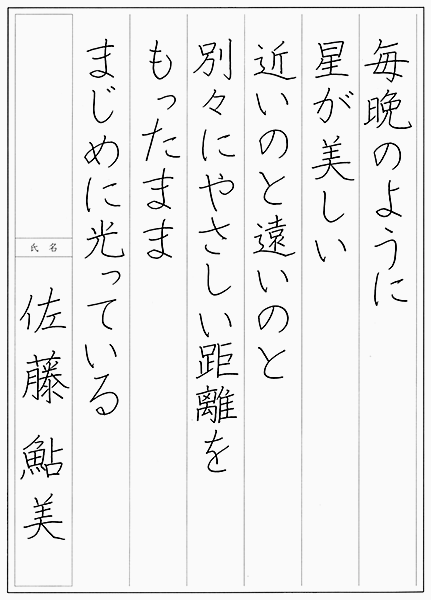 毎晩のように
星が美しい
近いのと遠いのと
別々にやさしい距離を
もったまま
まじめに光っている
氏名
佐藤鮎美